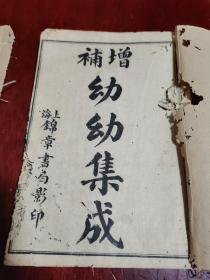 增補
幼幼集成
上海錦章書局影印